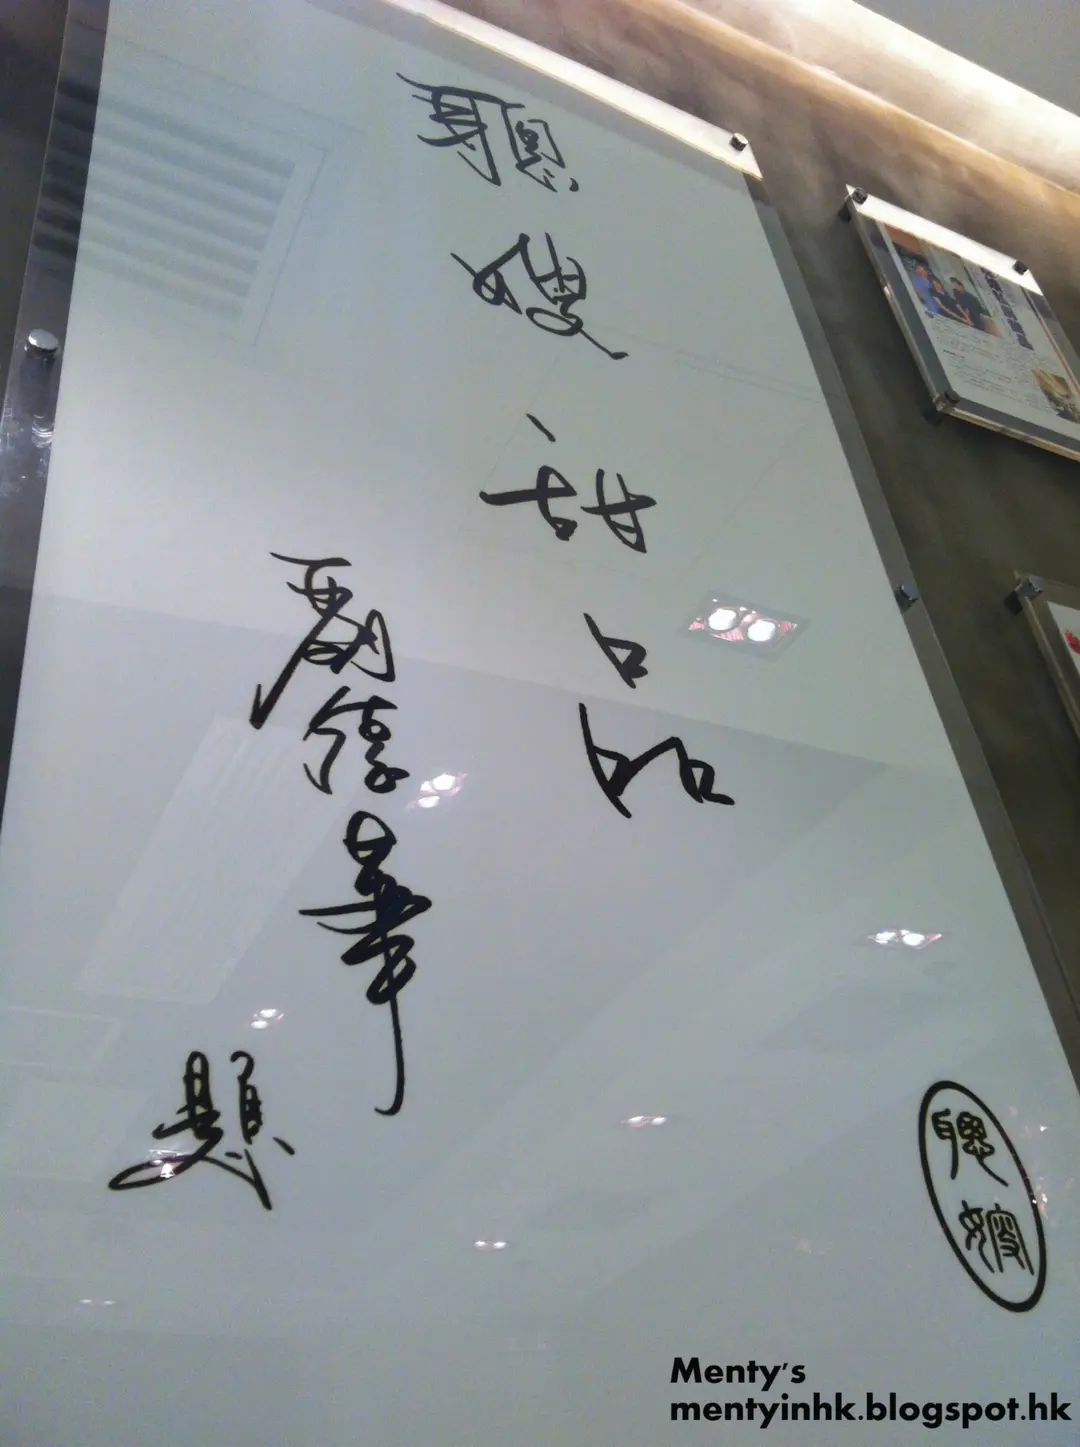 聰嫂甜品
劉德華
題
聰嫂
Menty's
mentyinhk.blogspot.hk